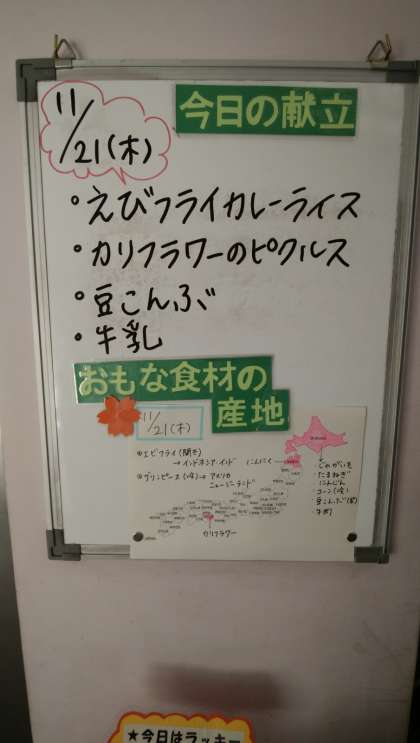 11/21(木)
今日の献立
・えびフライカレーライス
・カリフラワーのピクルス
・豆こんぶ
・牛乳
おもな食材の
産地
11/21(木)
エビフライ(開き)
→インドネシア・インド
グリンピース(冷)→アメリカ
ニュージーランド
にんにく
・じゃがいも
・たまねぎ
・にんじん
・コーン(冷)
・牛乳
カリフラワー
★今日はラッキー